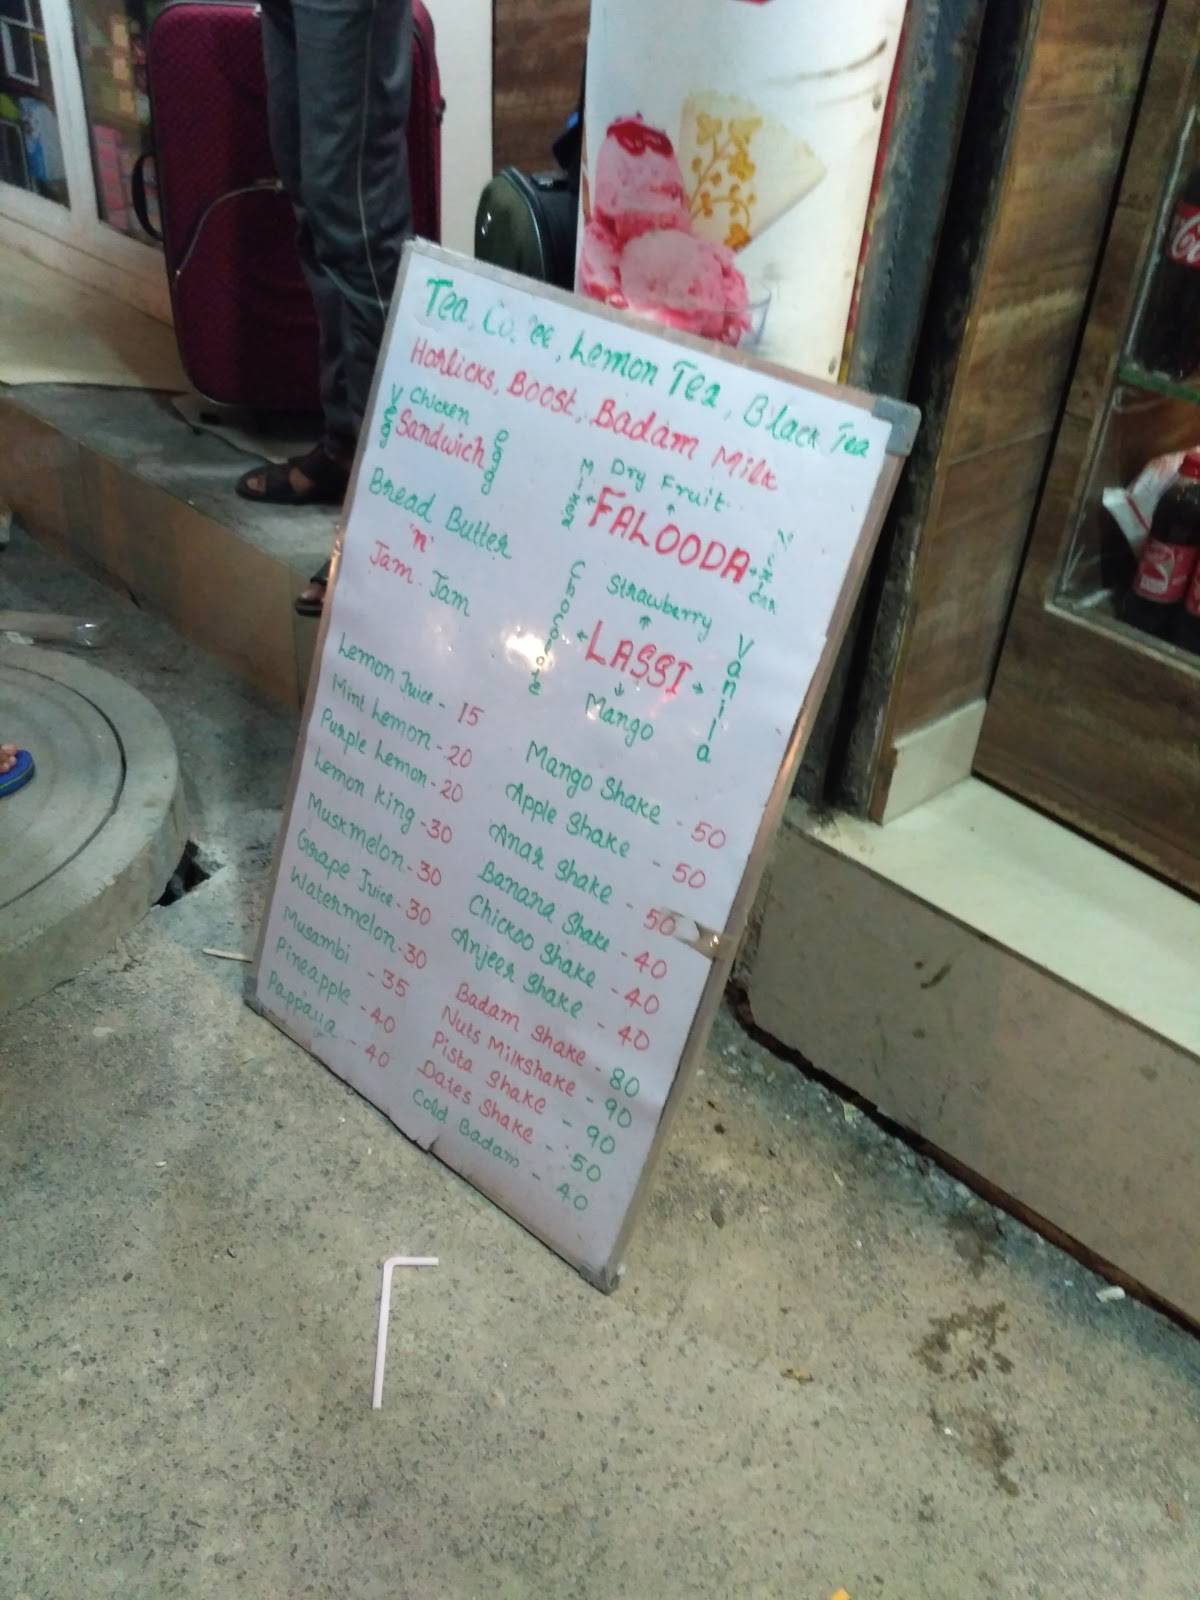 Tea, Co. ee, Lemon Tea, Black Tea
Horlicks, Boost, Badam Milk
Vegg Chicken Egg
Sandwich
Bread Butter
'n'
Jam. Jam
Dry Fruit
Mixer FALOODA Mexican
Strawberry
Chocolate LASSI Vanilla
Mango
Lemon Juice - 15
Mint Lemon - 20
Purple Lemon - 20
Lemon King - 30
Muskmelon - 30
Grape Juice - 30
Watermelon - 30
Musambi - 35
Pineapple - 40
Pappaya - 40
Mango Shake - 50
Apple Shake - 50
Anar Shake - 50
Banana Shake - 40
Chickoo Shake - 40
Anjeer Shake - 40
Badam Shake - 80
Nuts Milkshake - 90
Pista Shake - 90
Dates Shake - 50
Cold Badam - 40